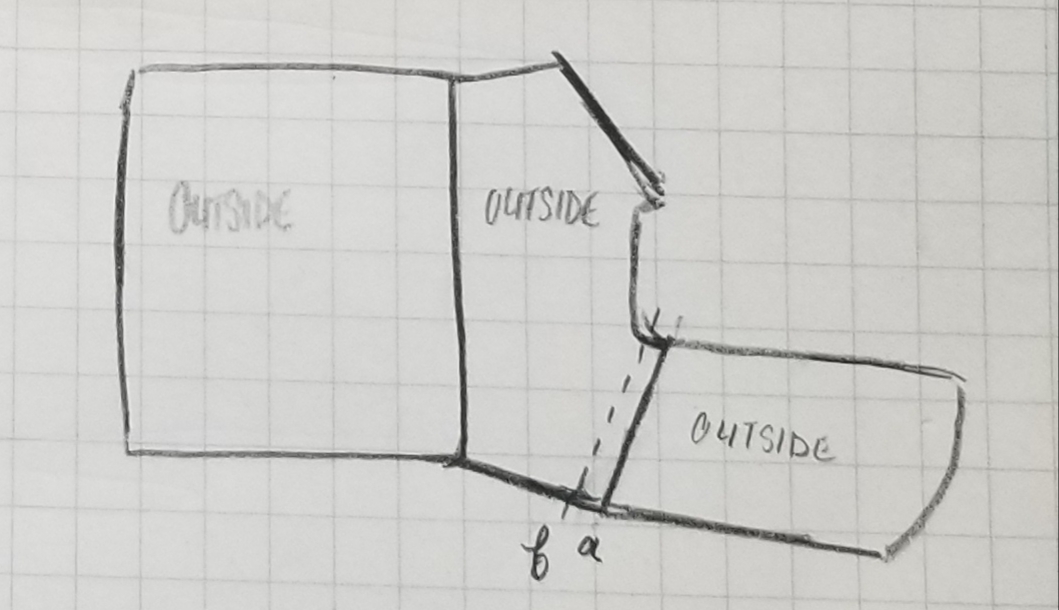 OUTSIDE
OUTSIDE
OUTSIDE
b a